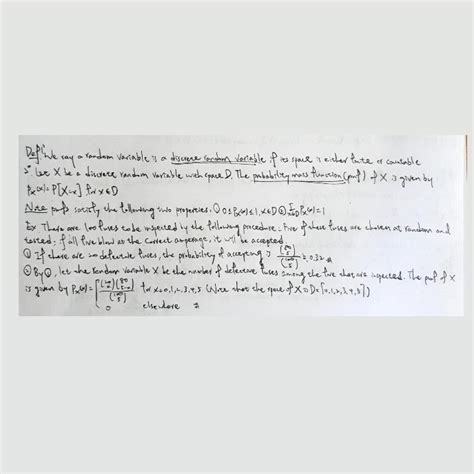 Def! 1° We say a random variable is a discrete random variable if its space is either finite or countable
2° Let X be a discrete random variable with space D. The probability mass function (pmf) of X is given by
Px(x)=P[X=x] for x∈D
Note pmfs satisfy the following two properties. ① 0≤Px(x)≤1, x∈D ② Σx∈D Px(x)=1
Ex. There are 100 fuses to be inspected by the following procedure: Five of these fuses are chosen at random and
tested; if all five blow at the correct amperage, it will be accepted.
① If there are 20 defective fuses, the probability of accepting is (80 5)/(100 5) ≈ 0.32
② By ①, let the random variable X be the number of defective fuses among the five that are inspected. The pmf of X
is given by Px(x)= { (20 x)(80 5-x)/(100 5) for x=0,1,2,3,4,5 (Note that the space of X is D={0,1,2,3,4,5})
0 elsewhere